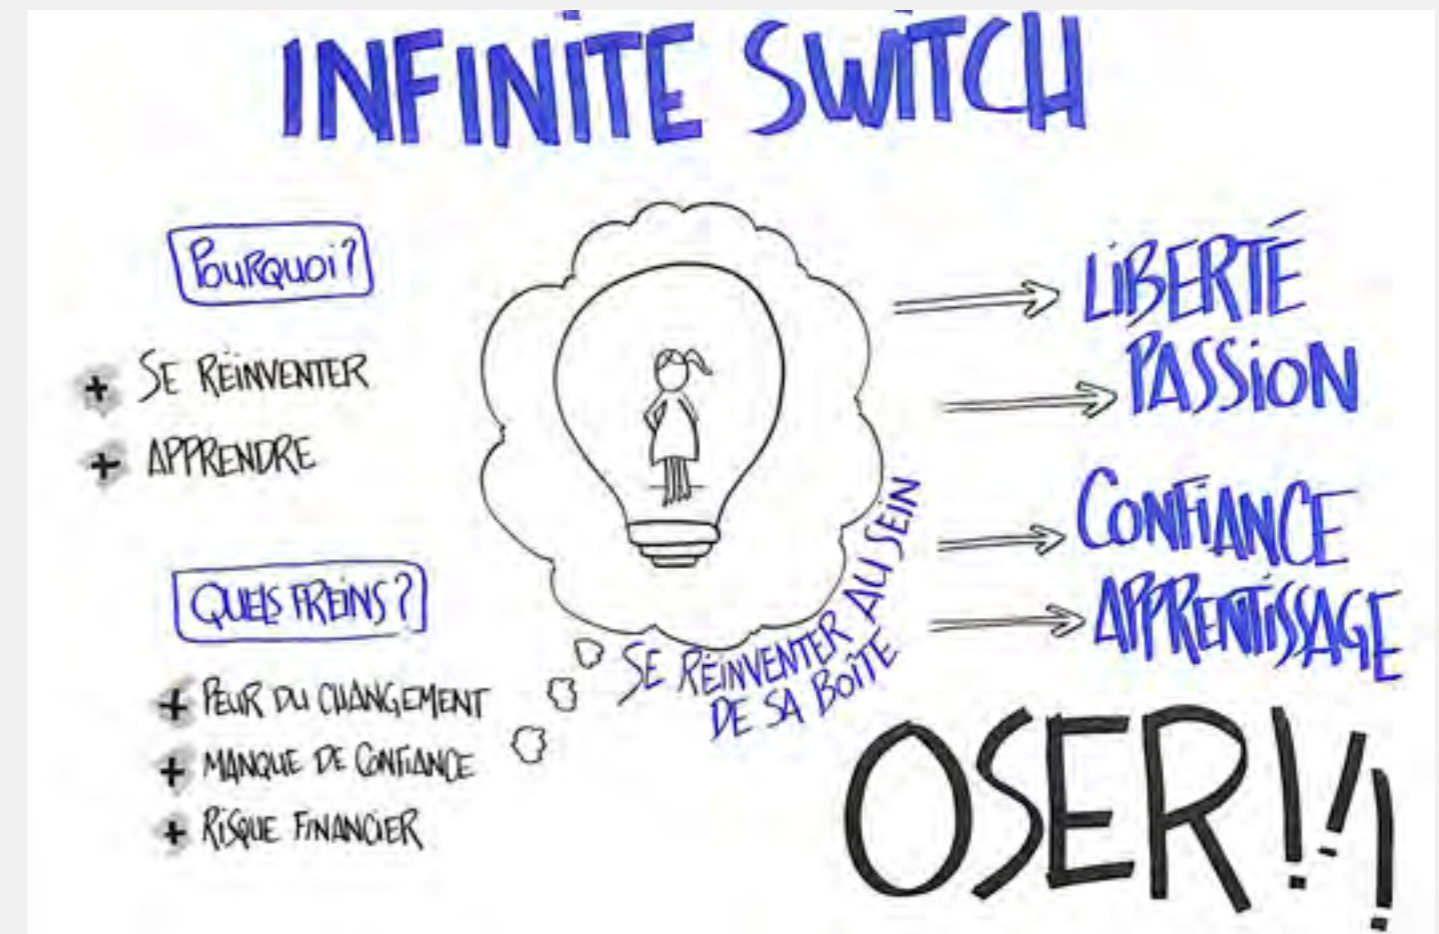 INFINITE SWITCH
POURQUOI ?
+ SE RÉINVENTER
+ APPRENDRE
QUELS FREINS ?
+ PEUR DU CHANGEMENT
+ MANQUE DE CONFIANCE
+ RISQUE FINANCIER
SE RÉINVENTER AU SEIN
DE SA BOÎTE
LIBERTÉ
PASSION
CONFIANCE
APPRENTISSAGE
OSER!!!